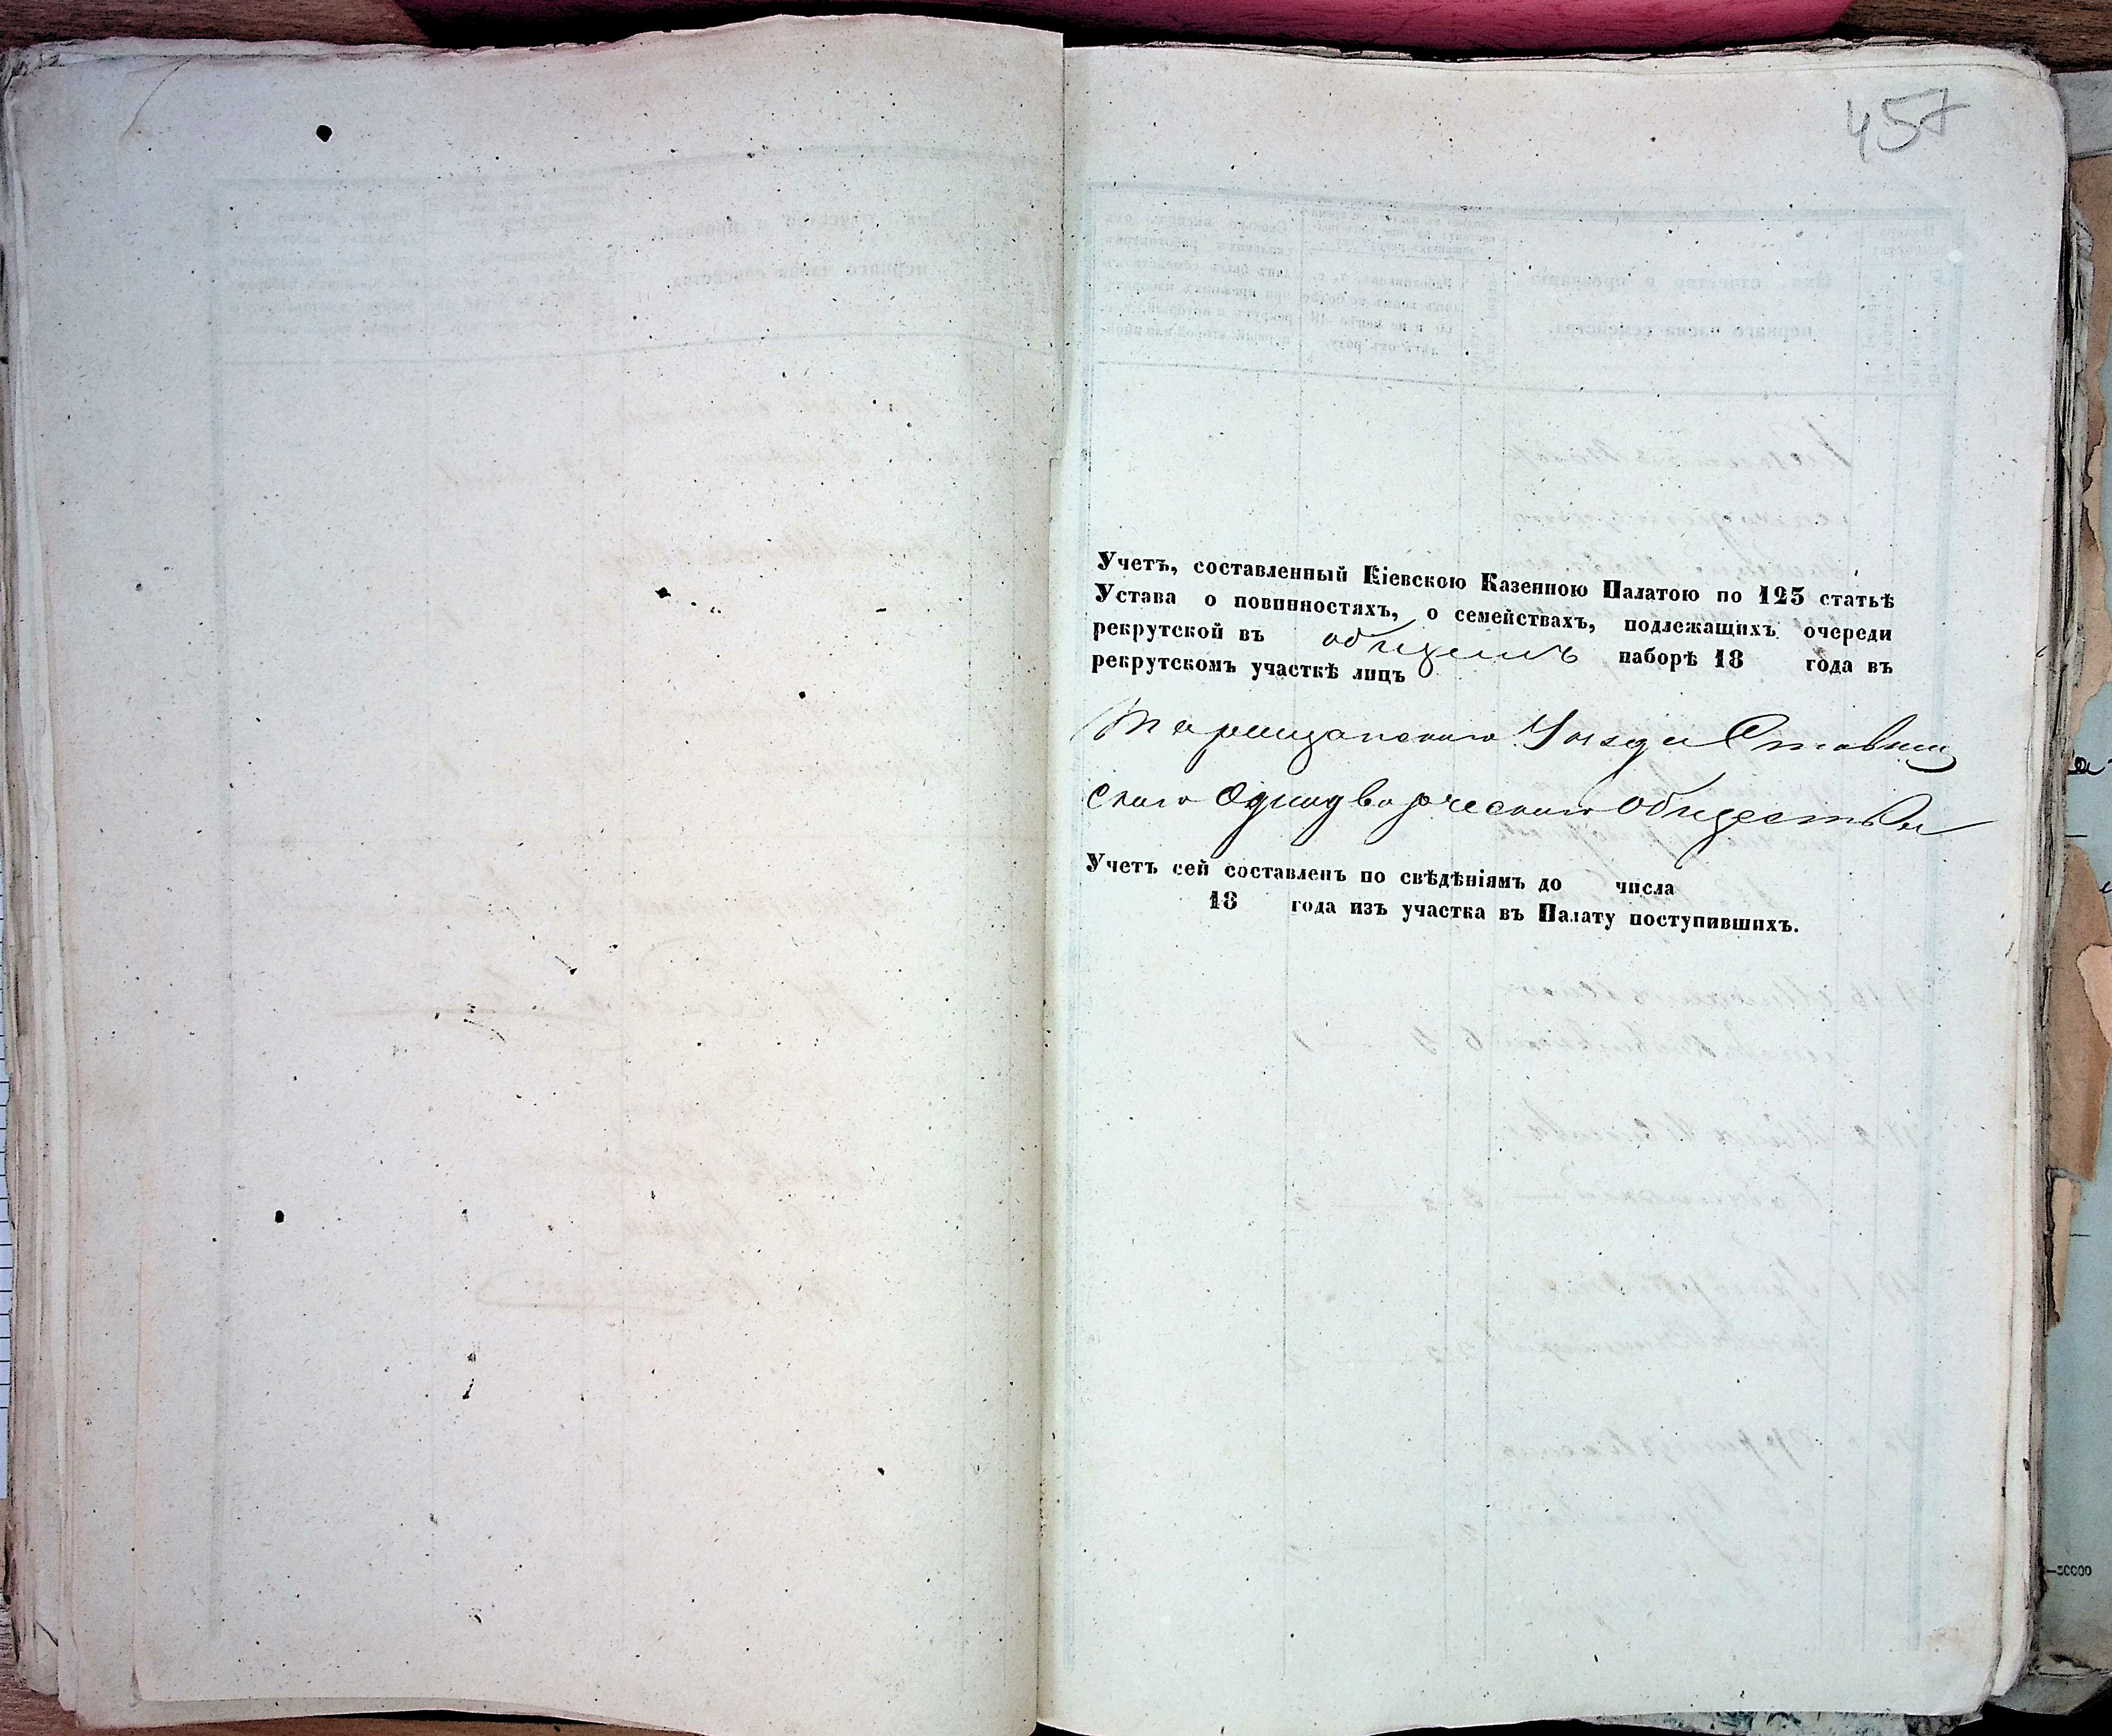 457
Учетъ, составленный Кіевскою Казенною Палатою по 125 статьѣ
Устава о повинностяхъ, о семействахъ, подлежащихъ очереди
рекрутской въ общемъ наборѣ 18 года въ
рекрутскомъ участкѣ лицъ
Таращанскаго Уѣзда Ставищ
скаго Однодворческаго Общества
Учетъ сей составленъ по свѣдѣніямъ до числа
18 года изъ участка въ Палату поступившихъ.
50000